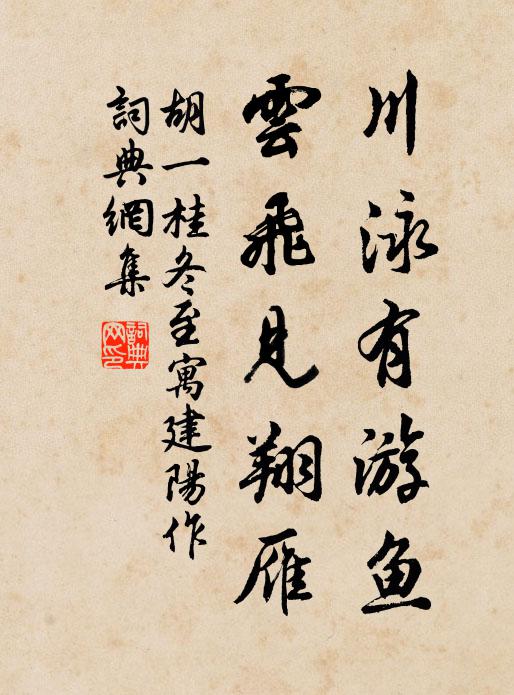 川泳有游鱼
雲飛見翔雁
胡一桂冬至寓建陽作
詞典網集
詞典
网印